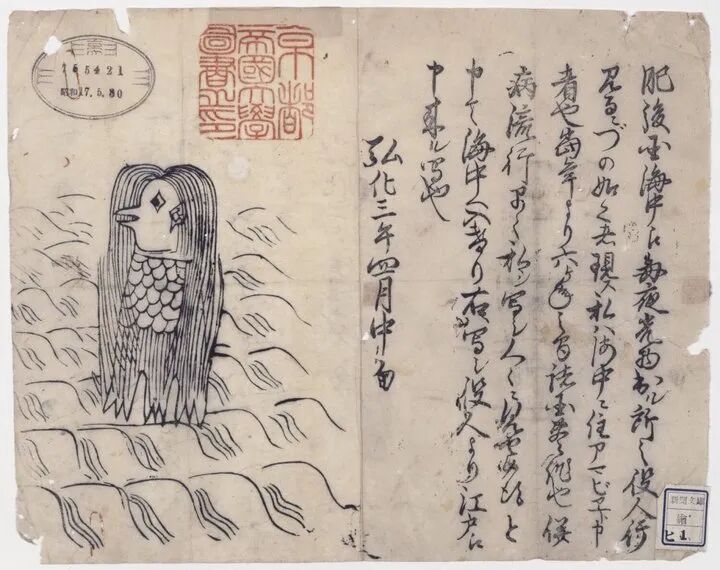 肥後国海中え毎夜光物出ル所之役人行
見るニづの如く者現ス私ハ海中ニ住アマビヱト申
者也當年より六ヶ年之間諸国豊作也併
病流行早々私ヲ写シ人々ニ見セ候得と
申て海中へ入けり右写シ役人より江戸え
申来ル写也
弘化三年四月中旬
京都
帝國大學
圖書之印
165421
昭和17.5.30
新聞文庫
繪